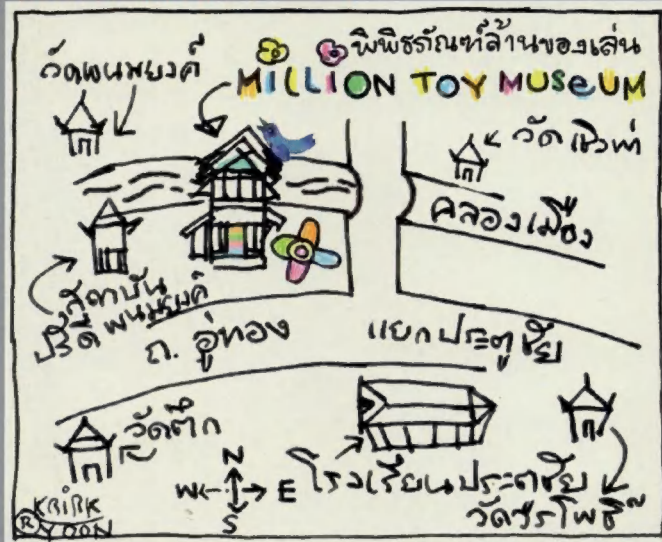 พิพิธภัณฑ์ล้านของเล่น
MILLION TOY MUSEUM
วัดพนมยงค์
วัดเชิงท่า
คลองเมือง
สถาบัน
ปรีดี พนมยงค์
ถ. อู่ทอง
แยกประตูชัย
วัดตึก
N
W E
S
โรงเรียนประตูชัย
วัดวรโพธิ์
KRIRK
® YOON